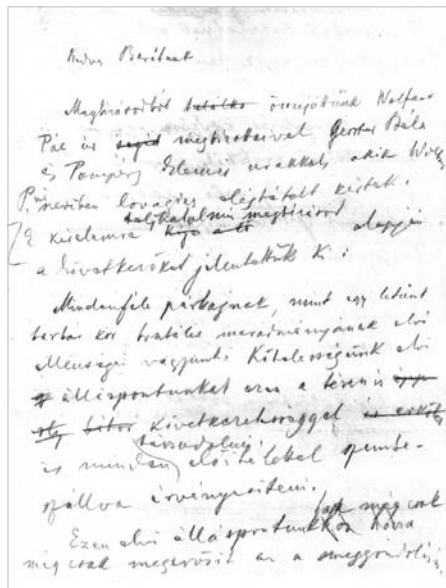 Kedves Barátunk
Megbízásodból találko összejöttünk Wolfner
Pál úr segéd megbizottaival Gerster Béla
és Pompéry Elemér urakkal, akik Wolfner
P. úr nevében lovagias elégtételt kértek.
E kívánalomra teljhatalmú megbizásod alapján
a következőket jelentettük ki:
Mindenféle párbajnak, mint egy letünt
barbár kor brutális maradványának elvi
ellenségei vagyunk. Kötelességünk elvi
álláspontunkat ezen a téren is
következetességgel
és minden társadalmi előítélettel szembe-
szállva érvényesíteni.
Ezen elvi álláspontunkon
még csak megerősít az a meggondolás,